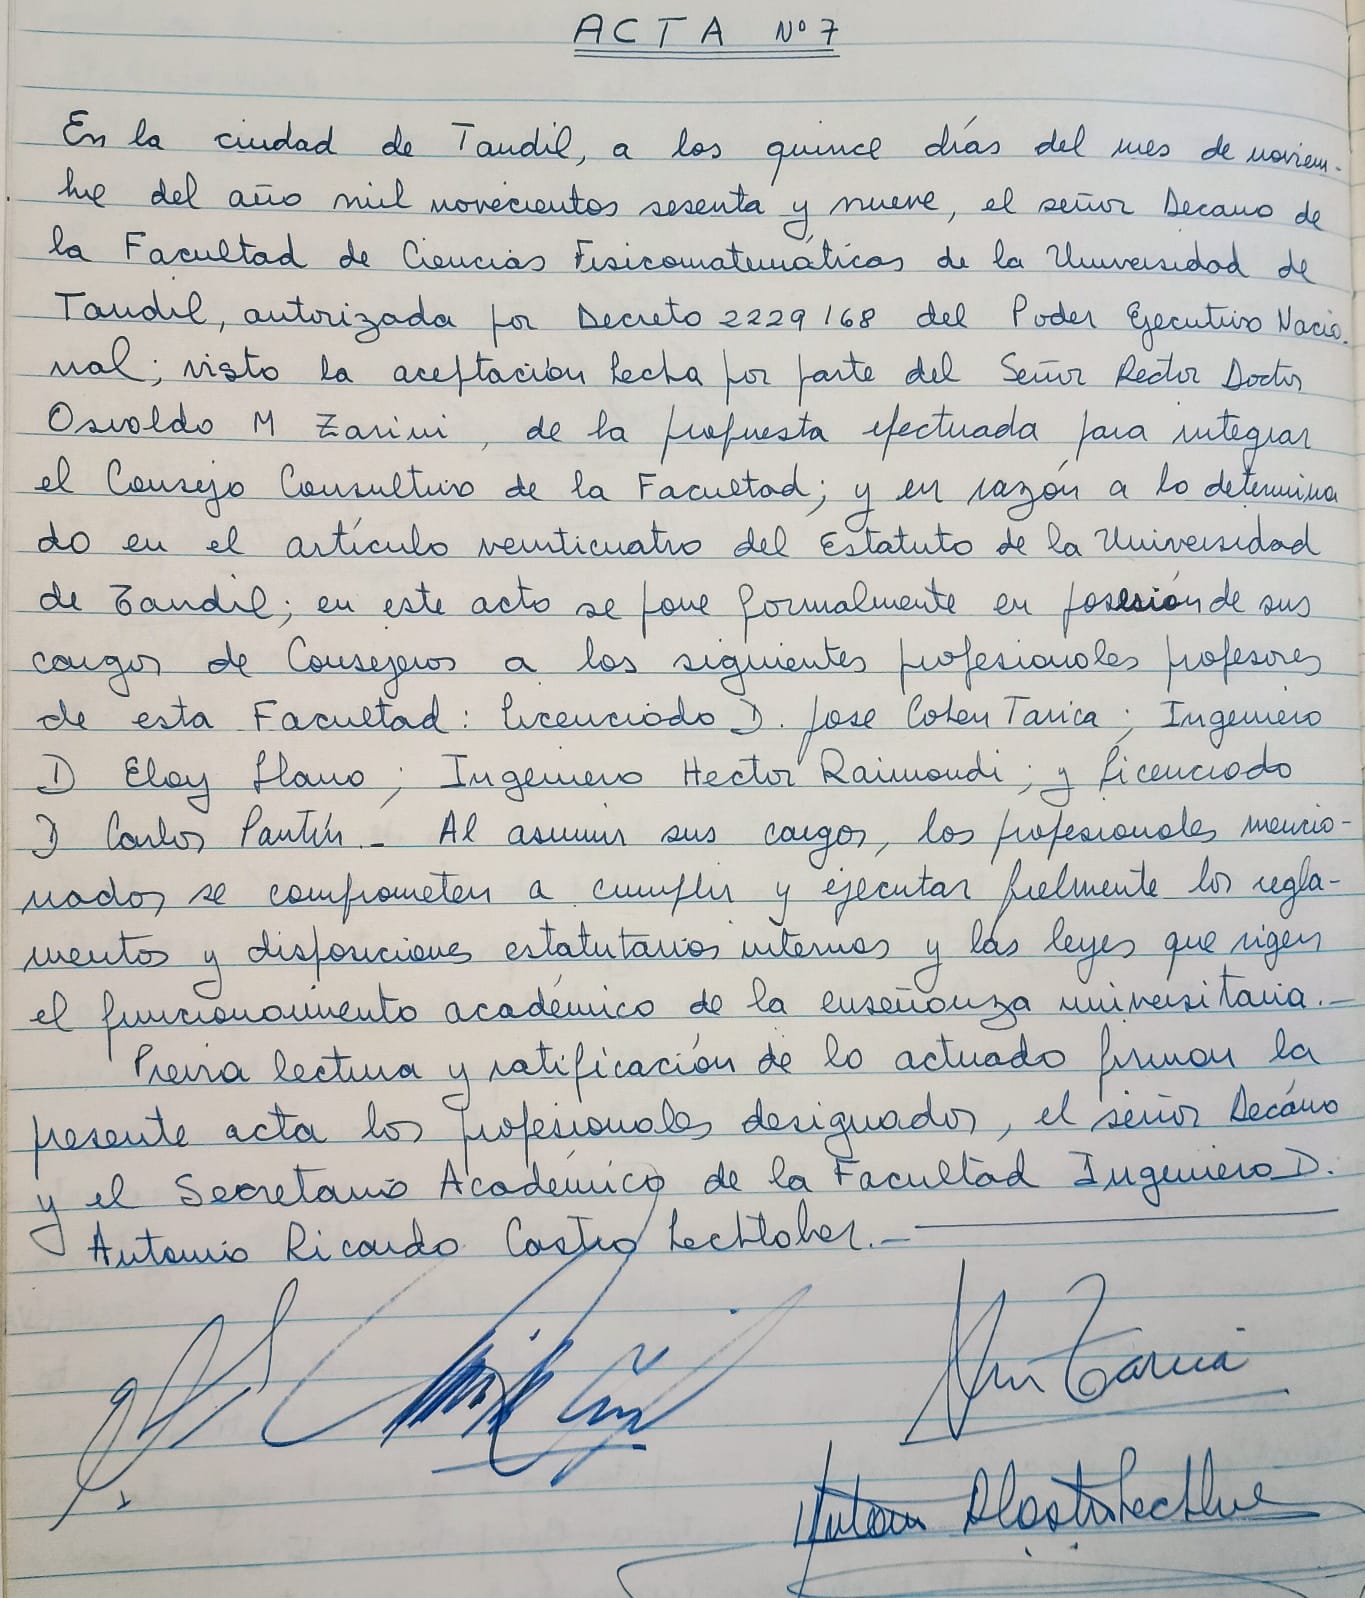 ACTA Nº 7
En la ciudad de Tandil, a los quince días del mes de noviem-
bre del año mil novecientos sesenta y nueve, el señor Decano de
la Facultad de Ciencias Fisicomatemáticas de la Universidad de
Tandil, autorizada por Decreto 2229/68 del Poder Ejecutivo Nacio-
nal; visto la aceptación hecha por parte del Señor Rector Doctor
Osvaldo M Zarini, de la propuesta efectuada para integrar
el Consejo Consultivo de la Facultad; y en razón a lo determina
do en el artículo veinticuatro del Estatuto de la Universidad
de Tandil; en este acto se pone formalmente en posesión de sus
cargos de Consejeros a los siguientes profesionales profesores
de esta Facultad: Licenciado D. Jose Cohen Tarica; Ingeniero
D Eloy Llano; Ingeniero Hector Raimondi; y Licenciado
D Carlos Pantín._ Al asumir sus cargos, los profesionales mencio-
nados se comprometen a cumplir y ejecutar fielmente los regla-
mentos y disposiciones estatutarias internas y las leyes que rigen
el funcionamiento académico de la enseñanza universitaria.-
Previa lectura y ratificación de lo actuado firman la
presente acta los profesionales designados, el señor Decano
y el Secretario Académico de la Facultad Ingeniero D.
Antonio Ricardo Castro Lechtaler.-